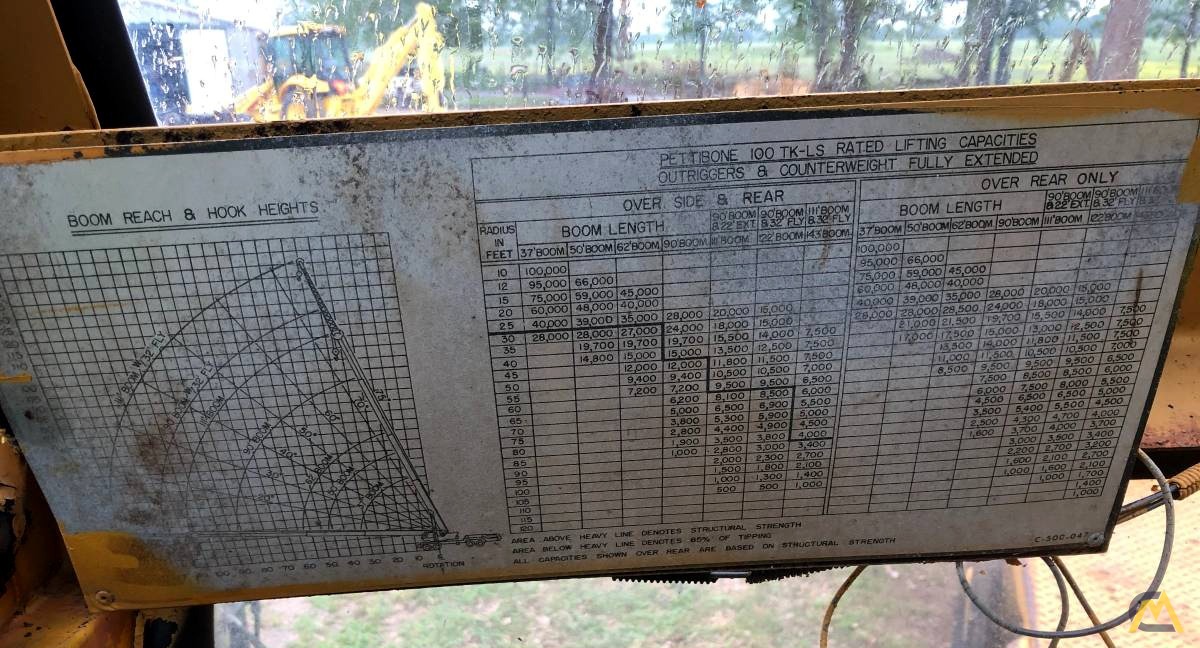 BOOM REACH & HOOK HEIGHTS
90' BOOM
62' BOOM
37' BOOM
ROTATION
100 90 80 70 60 50 40 30 20 10
PETTIBONE 100 TK-LS RATED LIFTING CAPACITIES
OUTRIGGERS & COUNTERWEIGHT FULLY EXTENDED
OVER SIDE & REAR
OVER REAR ONLY
RADIUS IN FEET
BOOM LENGTH
90'BOOM & 22' EXT 90'BOOM & 32' FLY 111'BOOM & 32' FLY
BOOM LENGTH
90'BOOM & 22' EXT 90'BOOM & 32' FLY
37'BOOM 50'BOOM 62'BOOM 90'BOOM 111'BOOM 122'BOOM 143'BOOM
37'BOOM 50'BOOM 62'BOOM 90'BOOM 111'BOOM 122'BOOM
10 100,000
12 95,000 66,000
15 75,000 59,000 45,000
20 60,000 48,000 40,000
25 40,000 39,000 35,000 28,000 20,000 15,000
30 28,000 28,000 27,000 24,000 18,000 15,000
35 19,700 19,700 19,700 15,500 14,000 7,500
40 14,800 15,000 15,000 13,500 12,500 7,500
45 12,000 12,000 11,800 11,500 7,500
50 9,400 9,400 10,500 10,500 7,000
55 7,200 7,200 9,500 9,500 6,500
60 6,200 8,100 8,500 6,000
65 5,000 6,500 6,900 5,500
70 3,800 5,300 5,900 5,000
75 2,800 4,400 4,900 4,500
80 1,900 3,500 3,800 4,000
85 1,000 2,800 3,000 3,400
90 2,000 2,300 2,700
95 1,500 1,800 2,100
100 1,000 1,300 1,400
105 500 500 1,000
110
115
120
100,000
95,000 66,000
75,000 59,000 45,000
60,000 48,000 40,000
40,000 39,000 35,000 28,000 20,000 15,000
28,000 28,000 28,500 24,000 18,000 15,000
21,000 21,500 19,700 15,500 14,000 7,500
17,000 17,500 15,000 13,000 12,500 7,500
13,500 14,000 11,800 11,500 7,500
11,000 11,500 10,500 10,500 7,000
8,500 9,500 9,500 9,500 6,500
7,500 8,500 8,500 6,000
6,000 7,500 8,000 5,500
4,500 6,500 6,500 5,000
3,500 5,400 5,500 4,500
2,500 4,300 4,700 4,000
1,600 3,700 4,000 3,700
3,000 3,500 3,400
2,200 2,700 3,200
1,600 2,100 2,700
1,000 1,600 2,100
1,000 1,700
1,400
1,000
AREA ABOVE HEAVY LINE DENOTES STRUCTURAL STRENGTH
AREA BELOW HEAVY LINE DENOTES 85% OF TIPPING
ALL CAPACITIES SHOWN OVER REAR ARE BASED ON STRUCTURAL STRENGTH